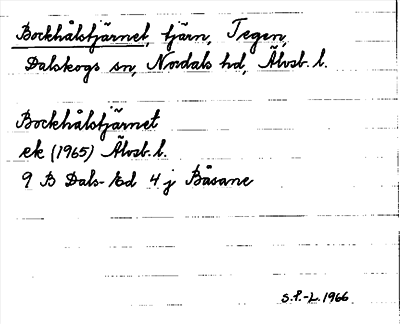 Bockhålstjärnet, tjärn, Tegen,
Dalskogs sn, Nordals hd, Älvsb. l.
Bockhålstjärnet
ek (1965) Älvsb. l.
9 B Dals-Ed 4 j Båsane
S.F.-L. 1966